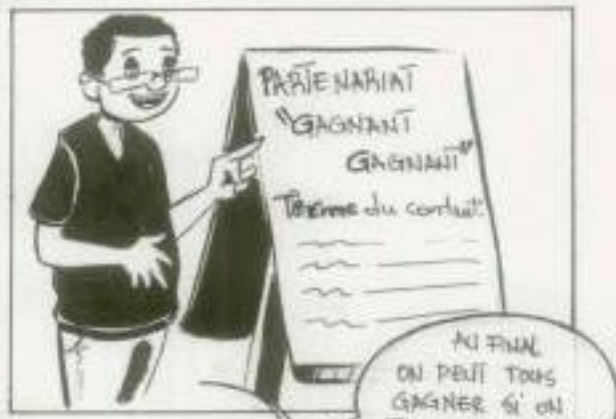 PARTENARIAT
"GAGNANT
GAGNANT"
du contrat:
AU FINAL
ON PEUT TOUS
GAGNER SI ON